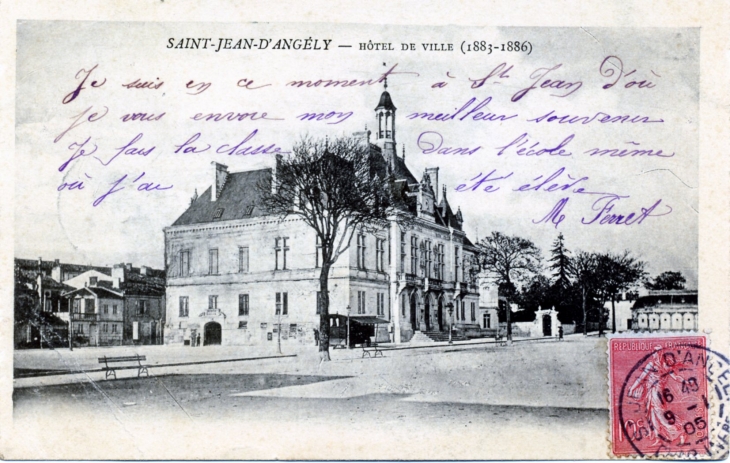 SAINT-JEAN-D'ANGÉLY — HÔTEL DE VILLE (1883-1886)
Je suis en ce moment à St Jean d'où
je vous envoie mon meilleur souvenir
Je fais la classe Dans l'école même
où j'ai été élève
M Ferret
REPUBLIQUE
D'ANGELY
16 45
9 - 1
05